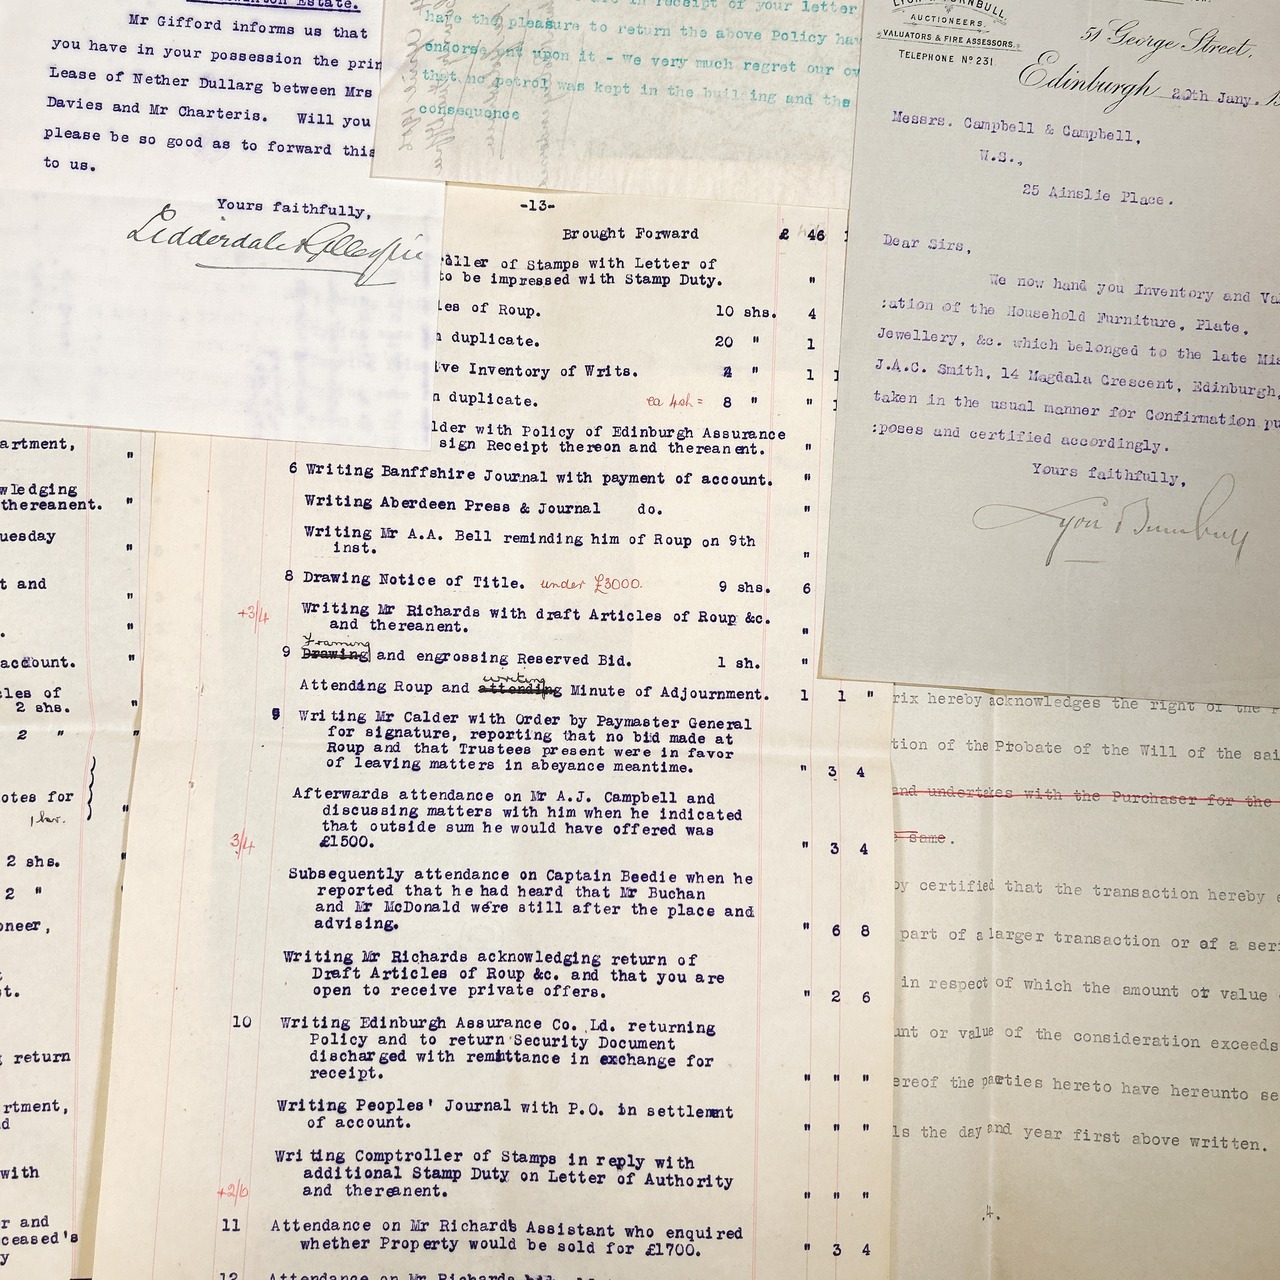 Estate.
Mr Gifford informs us that
you have in your possession the prin
Lease of Nether Dullarg between Mrs
Davies and Mr Charteris. Will you
please be so good as to forward this
to us.
Yours faithfully,
in receipt of your letter
have the pleasure to return the above Policy hav
upon it - we very much regret our ov
that no petrol was kept in the building and the
consequence
AUCTIONEERS.
VALUATORS & FIRE ASSESSORS.
TELEPHONE Nº 231.
51 George Street,
Edinburgh 20th Jany.
Messrs. Campbell & Campbell,
W.S.,
25 Ainslie Place.
Dear Sirs,
We now hand you Inventory and Va
:ation of the Household Furniture, Plate,
Jewellery, &c. which belonged to the late Mis
J.A.C. Smith, 14 Magdala Crescent, Edinburgh,
taken in the usual manner for Confirmation pu
:poses and certified accordingly.
Yours faithfully,
-13-
Brought Forward £ 46 1
oller of Stamps with Letter of
to be impressed with Stamp Duty. "
les of Roup. 10 shs. 4
n duplicate. 20 " 1
ve Inventory of Writs. " 1 1
n duplicate. ea 4sh = 8 " " 1
lder with Policy of Edinburgh Assurance
sign Receipt thereon and thereanent. "
6 Writing Banffshire Journal with payment of account. "
Writing Aberdeen Press & Journal do. "
Writing Mr A.A. Bell reminding him of Roup on 9th
inst. "
8 Drawing Notice of Title. under £3000. 9 shs. 6
+3/4 Writing Mr Richards with draft Articles of Roup &c.
and thereanent. "
Framing
9 Drawing and engrossing Reserved Bid. 1 sh. "
writing
Attending Roup and attending Minute of Adjournment. 1 1 "
9 Writing Mr Calder with Order by Paymaster General
for signature, reporting that no bid made at
Roup and that Trustees present were in favor
of leaving matters in abeyance meantime. " 3 4
Afterwards attendance on Mr A.J. Campbell and
discussing matters with him when he indicated
that outside sum he would have offered was
3/4 £1500. " 3 4
Subsequently attendance on Captain Beedie when he
reported that he had heard that Mr Buchan
and Mr McDonald were still after the place and
advising. " 6 8
Writing Mr Richards acknowledging return of
Draft Articles of Roup &c. and that you are
open to receive private offers. " 2 6
10 Writing Edinburgh Assurance Co. Ld. returning
Policy and to return Security Document
discharged with remittance in exchange for
receipt. " " "
Writing Peoples' Journal with P.O. in settlement
of account. " " "
Writing Comptroller of Stamps in reply with
additional Stamp Duty on Letter of Authority
+2/6 and thereanent. " " "
11 Attendance on Mr Richards Assistant who enquired
whether Property would be sold for £1700. " 3 4
12 Attendance on Mr Richards
artment,
"
wledging
thereanent. "
uesday
"
t and
"
. "
account. "
les of
2 shs. "
2 " "
otes for
"
2 shs. "
2 " "
oneer,
t.
g return
rtment,
d
with
r and
ceased's
y
rix hereby acknowledges the right of the
tion of the Probate of the Will of the sai
and undertakes with the Purchaser for the
same.
by certified that the transaction hereby e
part of a larger transaction or of a seri
in respect of which the amount or value
unt or value of the consideration exceeds
ereof the parties hereto have hereunto se
ls the day and year first above written.
.4.